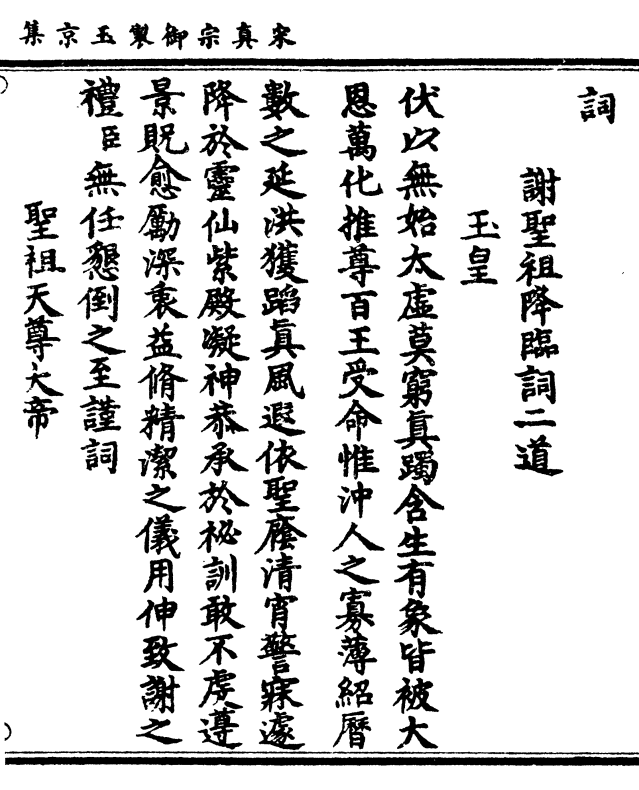 宋真宗御製玉京集
詞
謝聖祖降臨詞二道
玉皇
伏以無始太虛莫窮真躅含生有象皆被大
恩萬化推尊百王受命惟沖人之寡薄紹曆
數之延洪獲蹈真風遐依聖廕清宵警寐遽
降於靈仙紫殿凝神恭承於祕訓敢不虔遵
景貺愈勵深衷益脩精潔之儀用伸致謝之
禮臣無任懇倒之至謹詞
聖祖天尊大帝